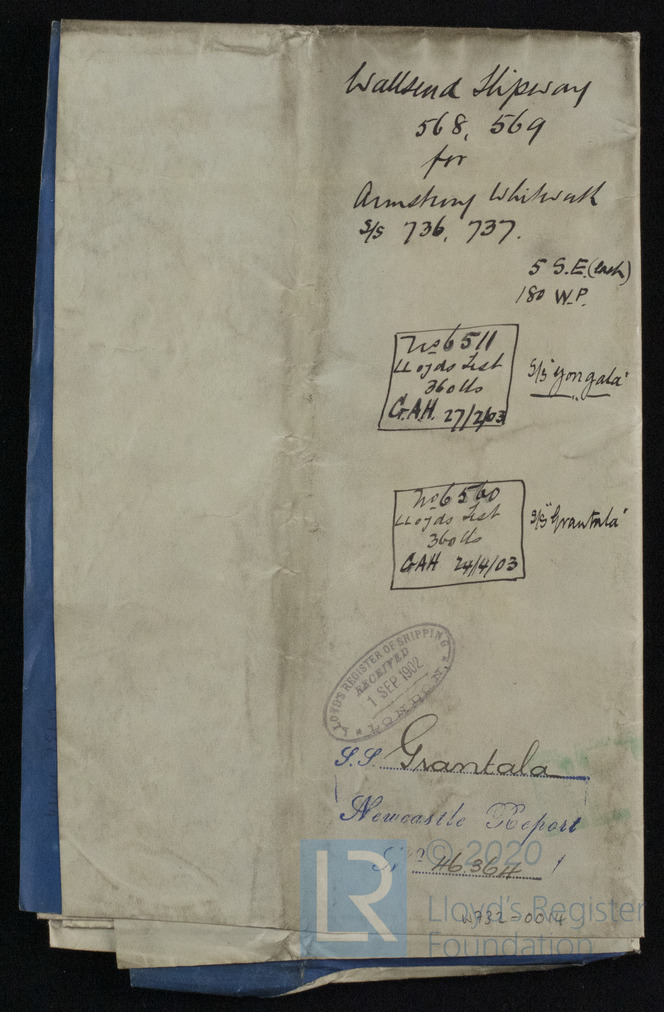 Wallsend Slipway
568, 569
for
Armstrong Whitworth
S/S 736, 737.
5 S.E. (each)
180 W.P.
No 6511
Lloyds Test
360 lbs
G.A.H. 27/2/03
S/S "Yongala"
No 6560
Lloyds Test
360 lbs
GAH 24/4/03
S/S "Grantala"
LLOYD'S REGISTER OF SHIPPING
RECEIVED
1 SEP 1902
LONDON
S.S. Grantala
Newcastle Report
No 46364
© 2020
LR
Lloyd's Register
Foundation
W732-0014